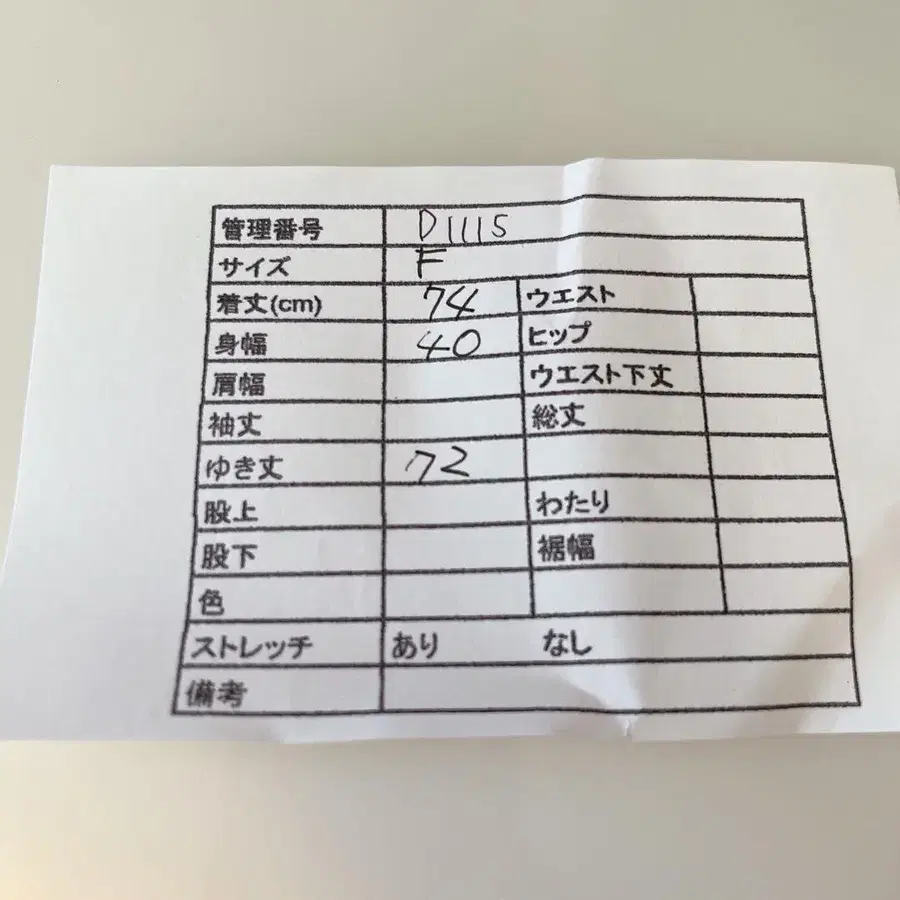 管理番号 D1115
サイズ F
着丈(cm) 74 ウエスト
身幅 40 ヒップ
肩幅 ウエスト下丈
袖丈 総丈
ゆき丈 72
股上 わたり
股下 裾幅
色
ストレッチ あり なし
備考